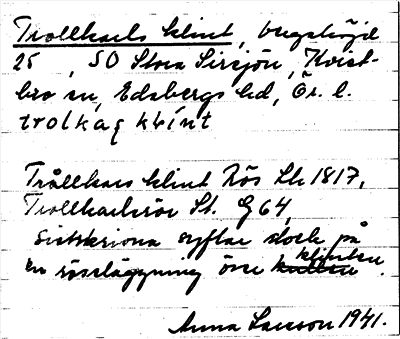 Trollkarls klint, bergshöjd
25 , SO Stora Sirsjön, Kvist-
bro sn, Edsbergs hd, Ör. l.
Trållkars klint Rös Lk 1817,
Trollkarlsrör St. G 64,
sistskrivna syftar dock på
en röseläggning öve klinten.
Anna Larsson 1941.